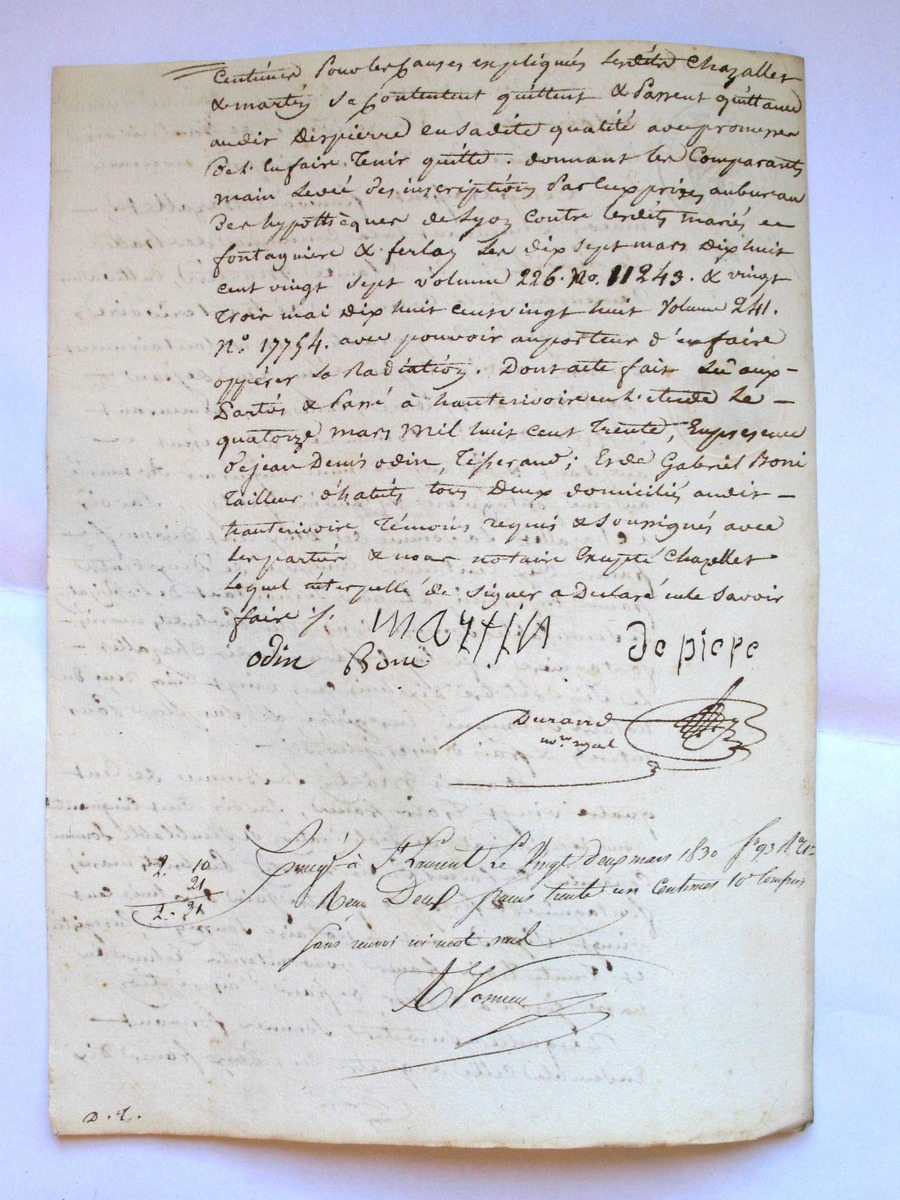 Centimes Pour les Causes expliqués lesdits Chazallet
& martin se Contentent quittent & Passent quittance
audit Depierre en sa dite qualité avec promesse
De l'en faire tenir quitte. donnant les Comparants
main Levée des inscriptions Par Eux prizes au bureau
des hypothèques de Lyon Contre lesdits mariés
fontagniere & ferlay Les dix sept mars Dix huit
cent vingt sept volume 226. No. 11243. & vingt
Trois mai Dix huit cent vingt huit Volume 241.
N° 17754. avec pouvoir au porteur d'en faire
oppérer La Radiation. Dont acte fait Lû aux -
Partis & Passé à hauterivoire en L'étude Le -
quatorze mars Mil huit cent Trente, En presence
de jean Denis odin, Tisserand; Et de Gabriel Boni
tailleur d'habits tous Deux domiciliés audit -
hauterivoire Témoins requis & soussignés avec
les parties & nous notaire Excepté Chazallet
Lequel interpellé de signer a Déclaré ne le savoir
faire /.
martin
depiere
odin Boni
Durand
nore royal
Enregé à St Laurent Le Vingt deux mars 1830 fo 93
2. 10
21
2. 31
Reçu Deux francs trente un Centimes 10e Compris
sans renvoi ni mot nul
D. 2.